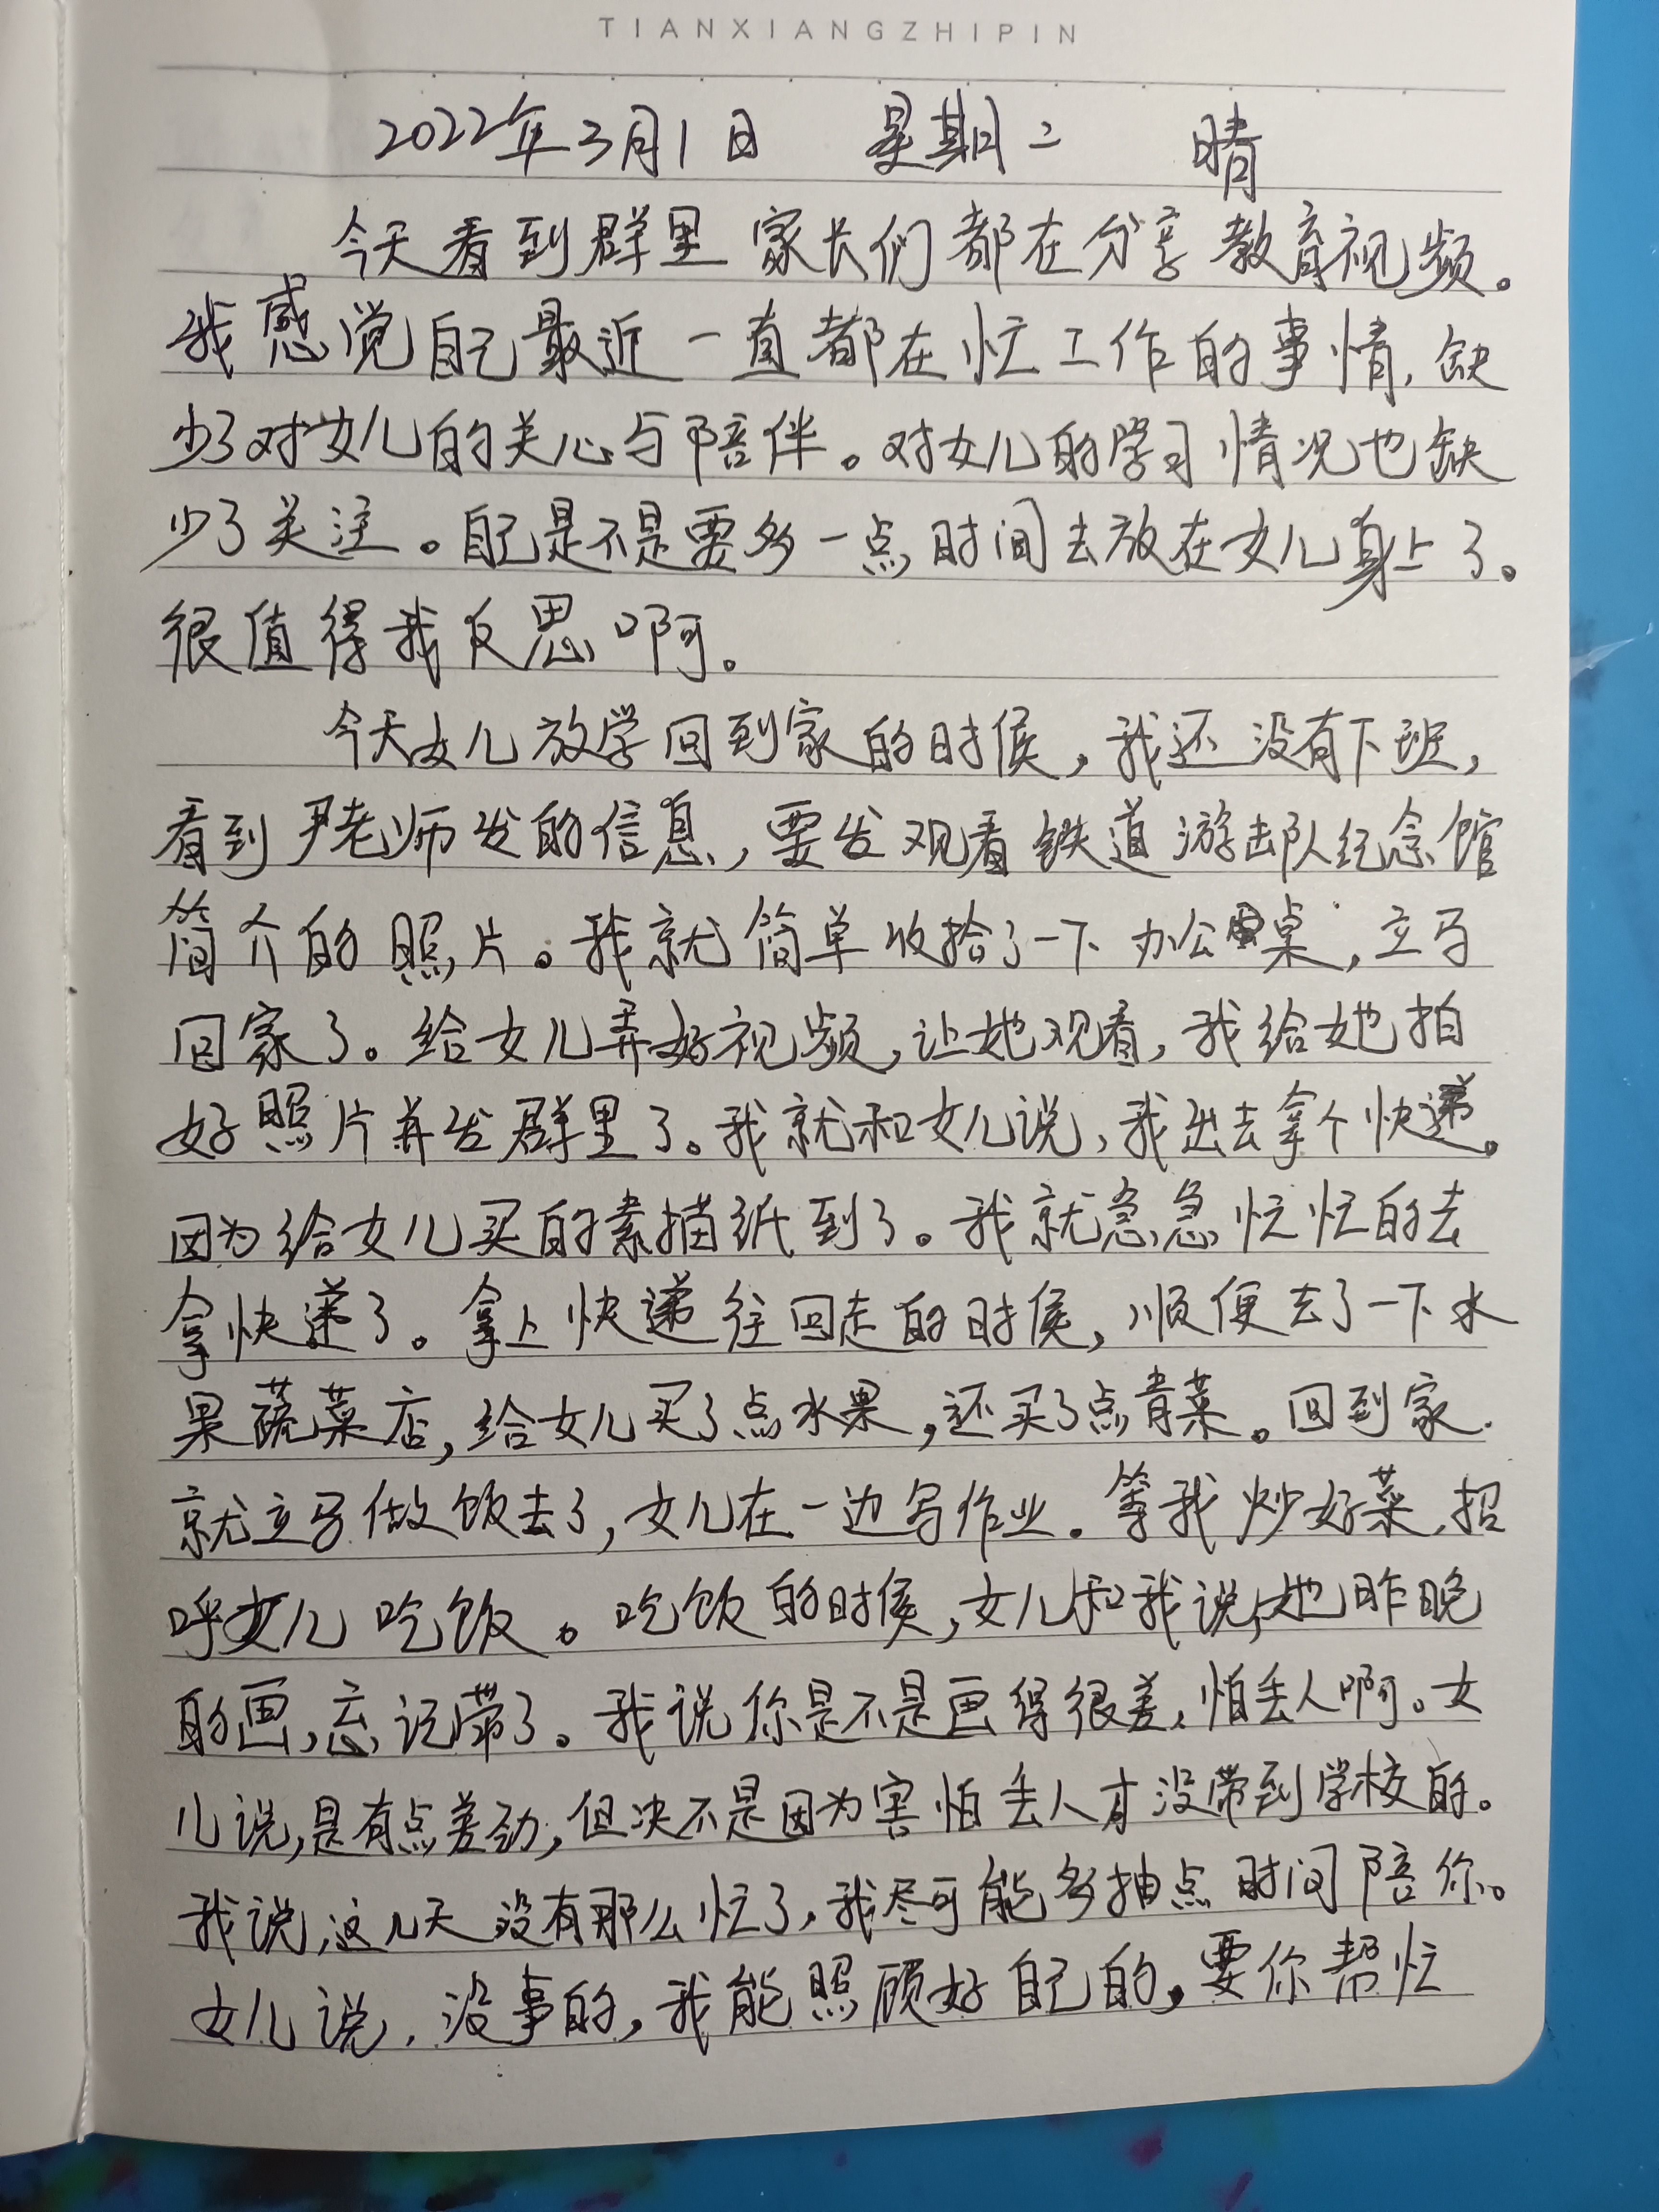 TIANXIANGZHIPIN
2022年3月1日 星期二 晴
今天看到群里家长们都在分享教育视频。
我感觉自己最近一直都在忙工作的事情,缺
少了对女儿的关心与陪伴。对女儿的学习情况也缺
少了关注。自己是不是要多一点时间去放在女儿身上了。
很值得我反思啊。
今天女儿放学回到家的时候,我还没有下班,
看到尹老师发的信息,要发观看铁道游击队纪念馆
简介的照片。我就简单收拾了一下办公桌,立马
回家了。给女儿弄好视频,让她观看,我给她拍
好照片并发群里了。我就和女儿说,我出去拿个快递。
因为给女儿买的素描纸到了。我就急急忙忙的去
拿快递了。拿上快递往回走的时候,顺便去了一下水
果蔬菜店,给女儿买了点水果,还买了点青菜。回到家
就立马做饭去了,女儿在一边写作业。等我炒好菜,招
呼女儿吃饭。吃饭的时候,女儿和我说,她昨晚
的画,忘记带了。我说你是不是画得很差,怕丢人啊。女
儿说,是有点差劲,但决不是因为害怕丢人才没带到学校的。
我说,这几天没有那么忙了,我尽可能多抽点时间陪你。
女儿说,没事的,我能照顾好自己的,要你帮忙